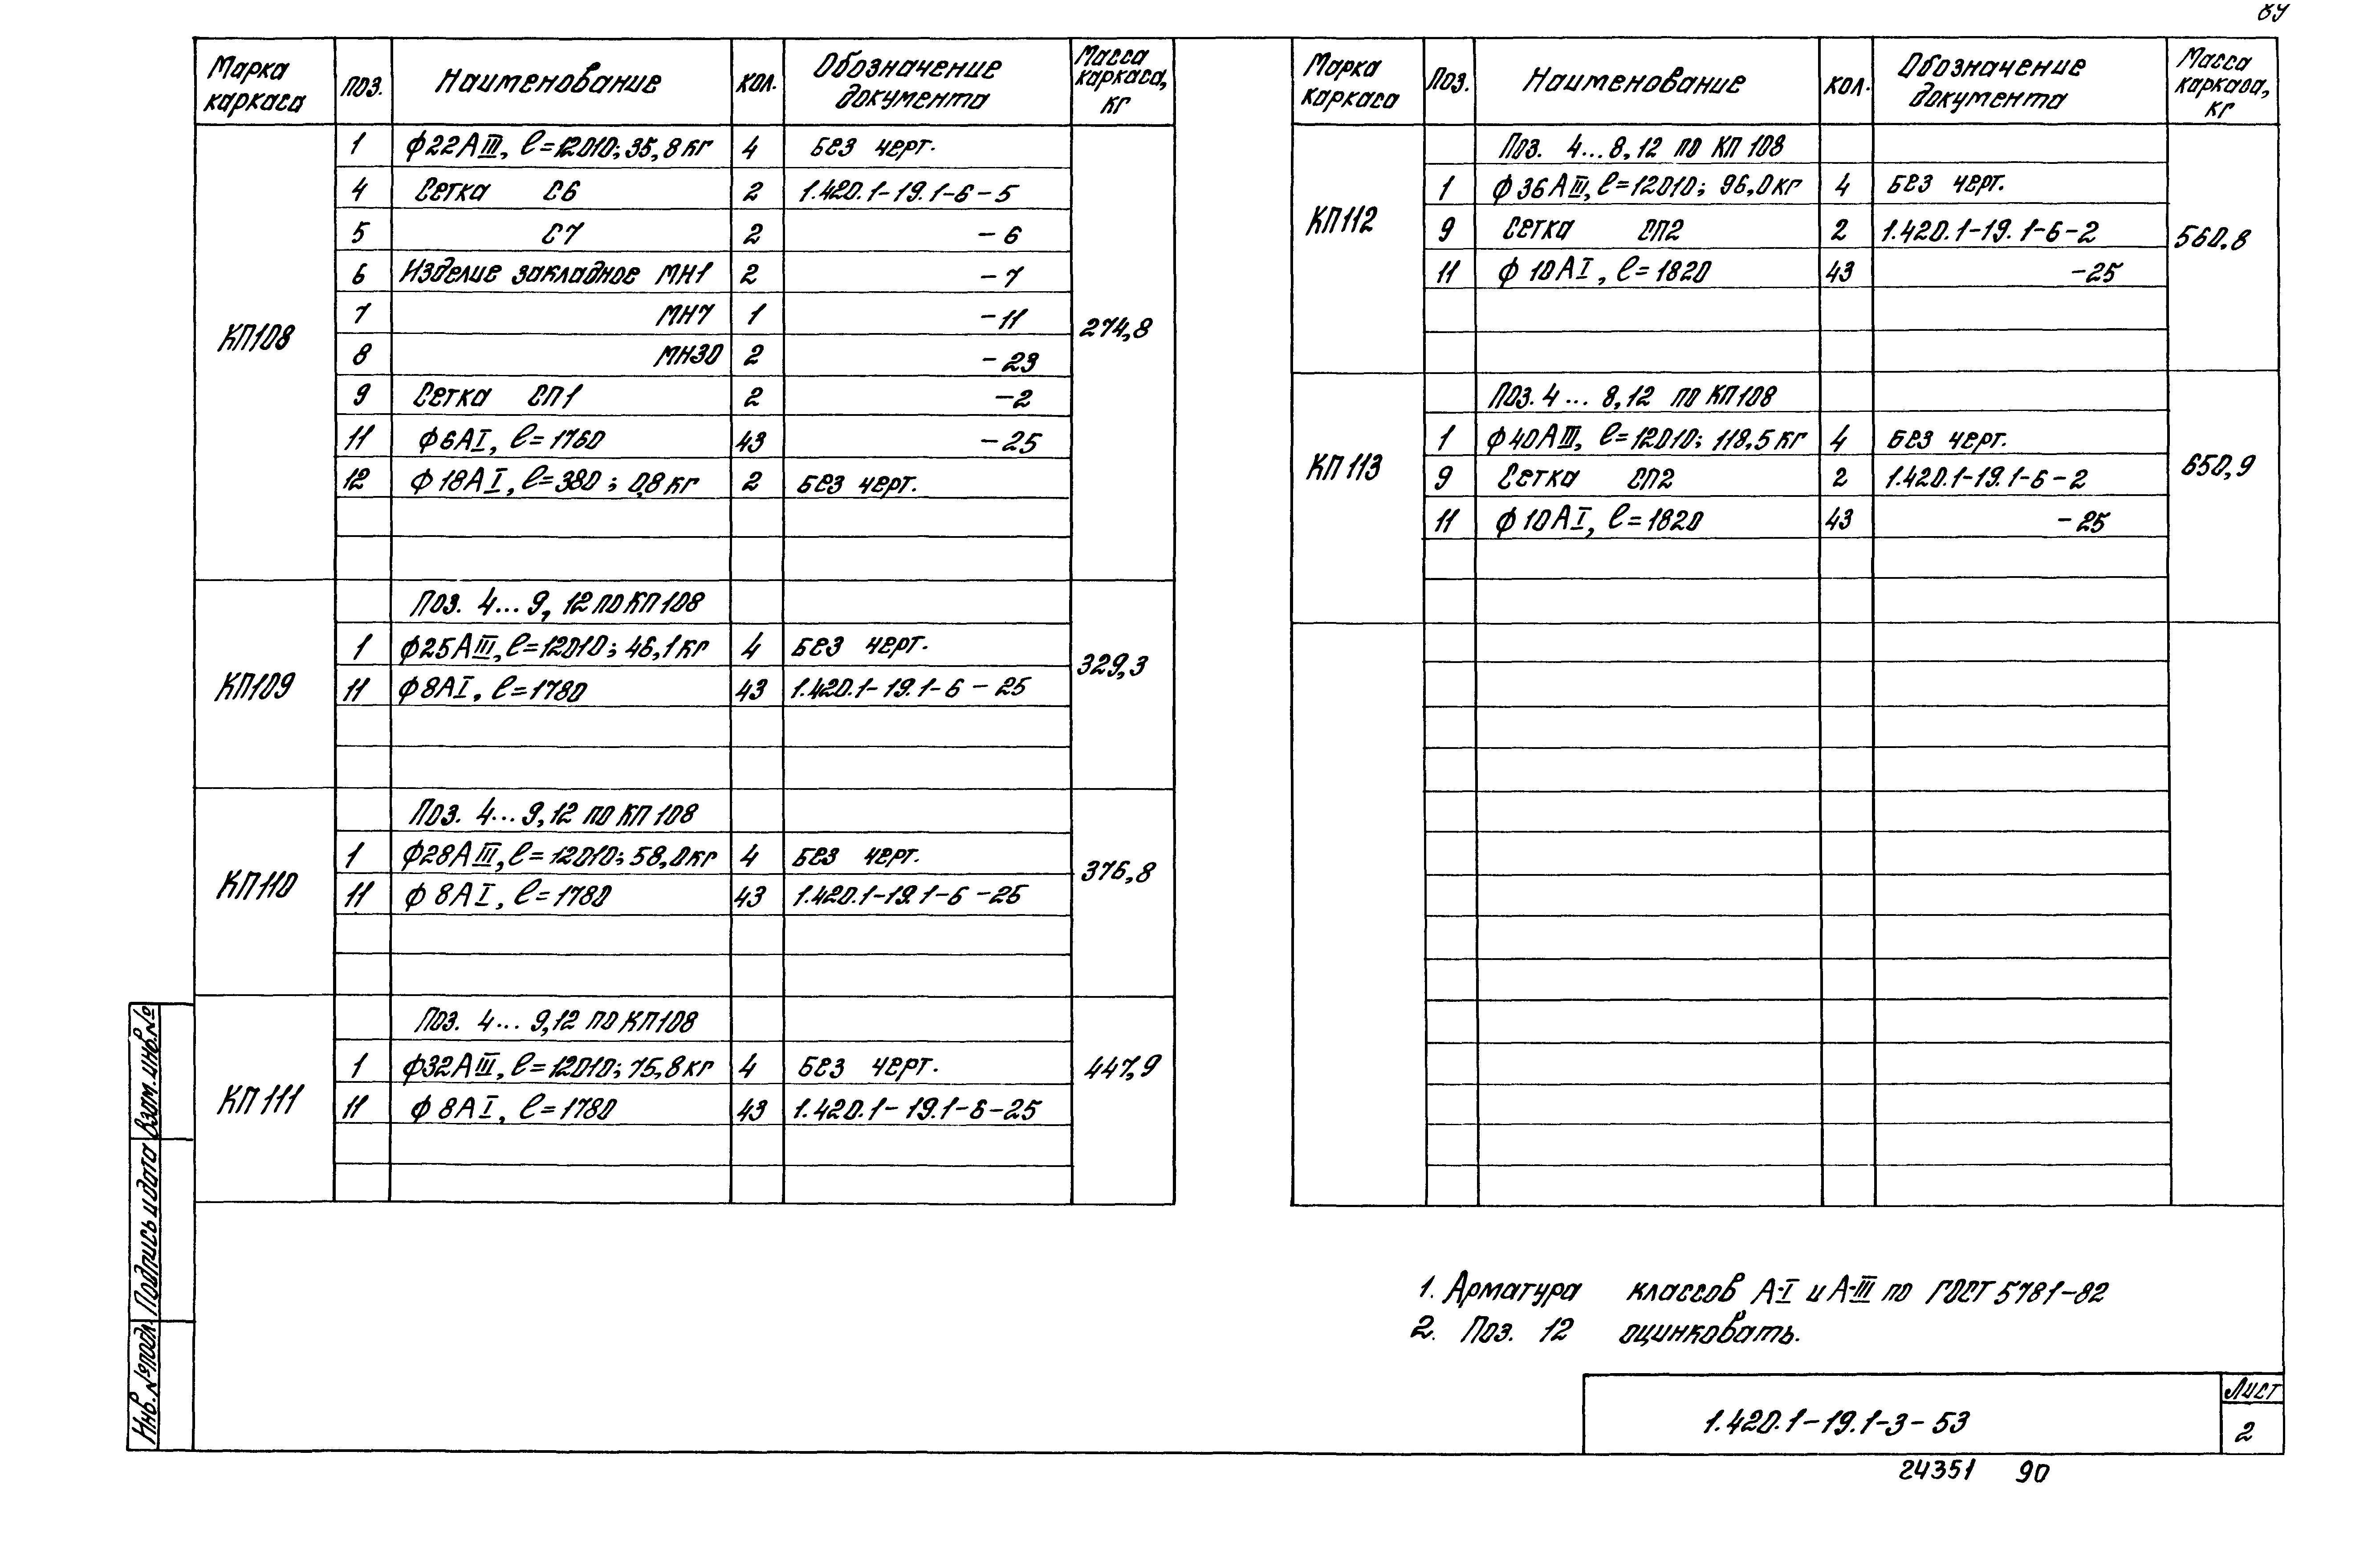 89
Марка каркаса поз. Наименование кол. Обозначение документа Масса каркаса, кг
КП108 274,8
1 ф22АIII, ℓ=12010; 35,8 кг 4 Без черт.
4 Сетка С6 2 1.420.1-19.1-6-5
5 С7 2 -6
6 Изделие закладное МН1 2 -7
7 МН7 1 -11
8 МН30 2 -23
9 Сетка СП1 2 -2
11 ф6АI, ℓ=1760 43 -25
12 ф18АI, ℓ=380; 0,8 кг 2 Без черт.
КП109 329,3
Поз. 4...9, 12 по КП108
1 ф25АIII, ℓ=12010; 46,1 кг 4 Без черт.
11 ф8АI, ℓ=1780 43 1.420.1-19.1-6-25
КП110 376,8
Поз. 4...9,12 по КП108
1 ф28АIII, ℓ=12010; 58,0кг 4 Без черт.
11 ф8АI, ℓ=1780 43 1.420.1-19.1-6-25
КП111 447,9
Поз. 4...9,12 по КП108
1 ф32АIII, ℓ=12010; 75,8 кг 4 Без черт.
11 ф8АI, ℓ=1780 43 1.420.1-19.1-6-25
Марка каркаса Поз. Наименование кол. Обозначение документа Масса каркаса, кг
КП112 560,8
Поз. 4...8,12 по КП108
1 ф36АIII, ℓ=12010; 96,0кг 4 Без черт.
9 Сетка СП2 2 1.420.1-19.1-6-2
11 ф10АI, ℓ=1820 43 -25
КП113 650,9
Поз. 4...8,12 по КП108
1 ф40АIII, ℓ=12010; 118,5 кг 4 Без черт.
9 Сетка СП2 2 1.420.1-19.1-6-2
11 ф10АI, ℓ=1820 43 -25
1. Арматура классов А-I и А-III по ГОСТ 5781-82
2. Поз. 12 оцинковать.
1.420.1-19.1-3-53
Лист
2
24351 90
Инв. № подл. Подпись и дата Взам. инв. №